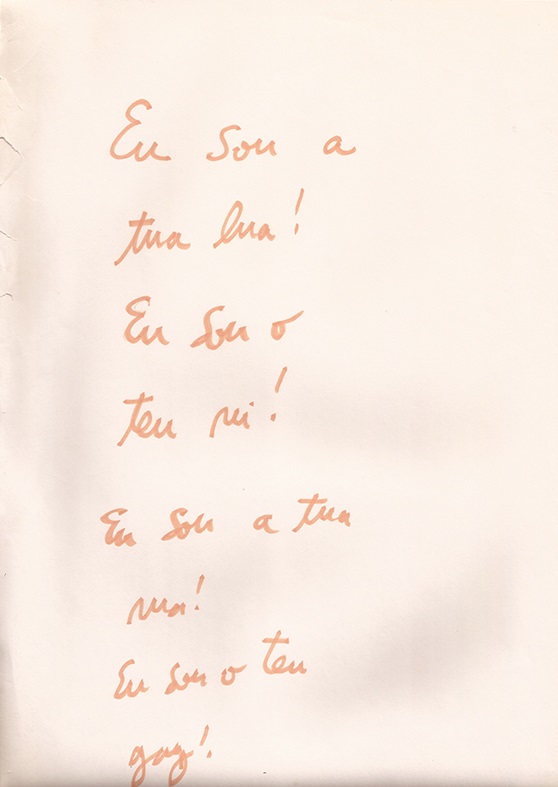 Eu sou a
tua lua!
Eu sou o
teu rei!
Eu sou a tua
rua!
Eu sou o teu
gay!